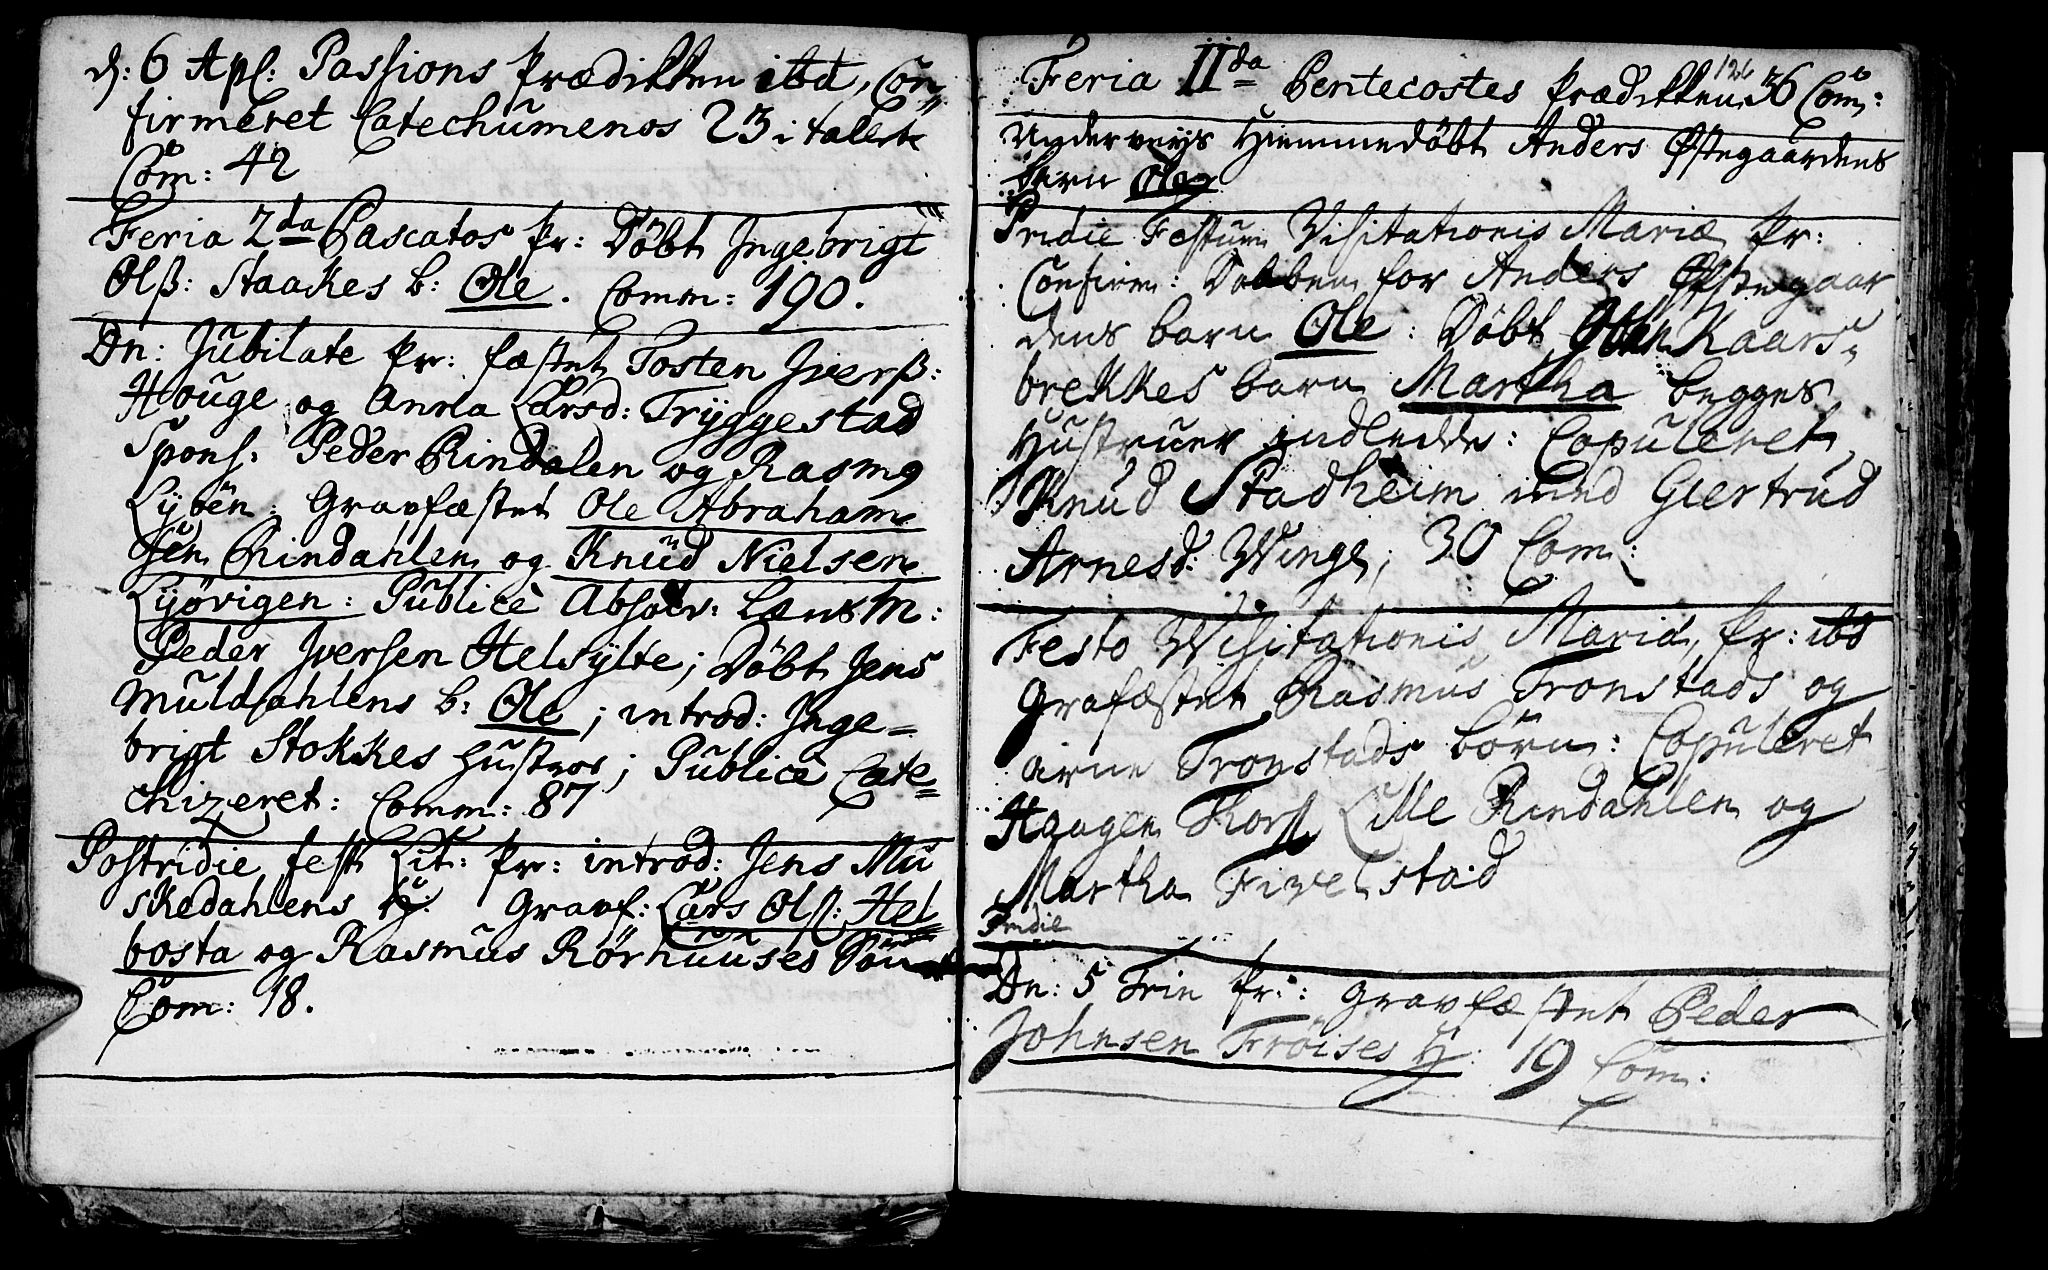 d: 6 Apl: Passions Prædikken ibd, Con„
firmeret Catechumenos 23 i tallet
Com: 42
Feria 2da Pascatos Pr: Döbt Ingebrigt
Olß: Staakes b: Ole. Comm: 190.
Dn: Jubilate Pr: fæstet Tosten Iverß:
Houge og Anna Larsd: Tryggestad
Spons: Peder Rindalen og Rasm9
Lyöen: Gravfæstet Ole Abraham
sen Rindahlen og Knud Nielsen
Lyörigen: Publicè Absolv: LænsM:
Peder Iversen Helsylte; Döbt Jens
Muldahlens b: Ole; introd: Inge=
brigt Stokkes Hustroe; Publicè Cate=
chizeret: Comm: 87
Postridie fest Lit: Pr: introd: Jens Mu
skedahlens H: Gravf: Lars Olß: Hel
bosta og Rasmus Rörhuuses Sön
Com: 18.
126
Feria IIda Pentecostes Prædikken 36 Com:
Underveys Hiemmedöbt Anders Østegaardens
barn Ole
Pridie Festum Visitationis Mariæ Pr:
Confirm: Daaben for Anders Østegaar
dens barn Ole: Döbt Kaars„
brekkes barn Martha begges
Hustruer indledde: Copuleret
Knud Stadheim med Giertrud
Arnesd: Winge; 30 Com:
Festo Visitationis Mariæ, Pr: ibd
Grafæstet Rasmus Tronstads og
arne Tronstads börn: Copuleret
Haagen Lille Rindahlen og
Martha Fivelstad
Pridie
Dn: 5 Trin Pr: Gravfæstet Peder
Johnsen Fröises H: 19 Com: